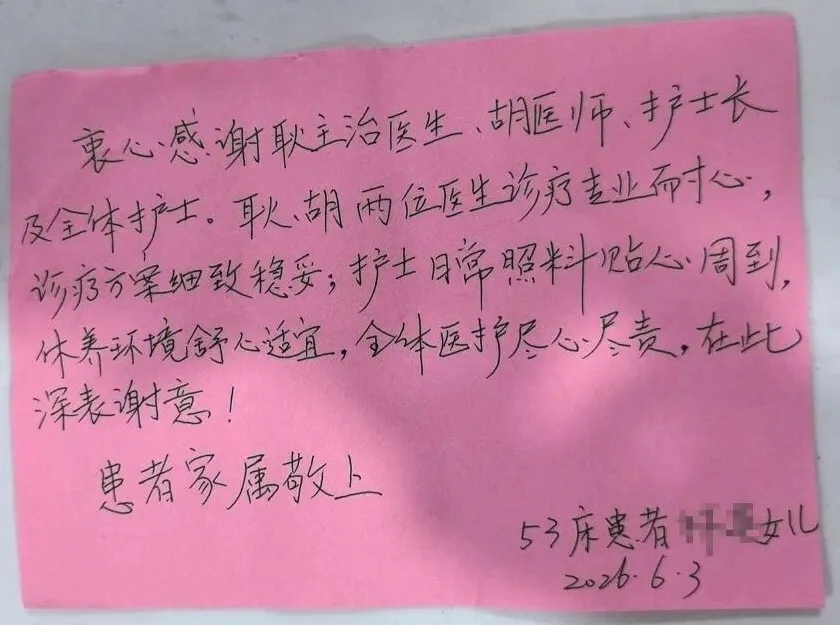 衷心感谢耿主治医生、胡医师、护士长
及全体护士。耿、胡两位医生诊疗专业而才心，
诊疗方案细致稳妥；护士日常照料贴心周到，
休养环境舒心适宜，全体医护尽心尽责，在此
深表谢意！
患者家属敬上
53床患者女儿
2026.6.3